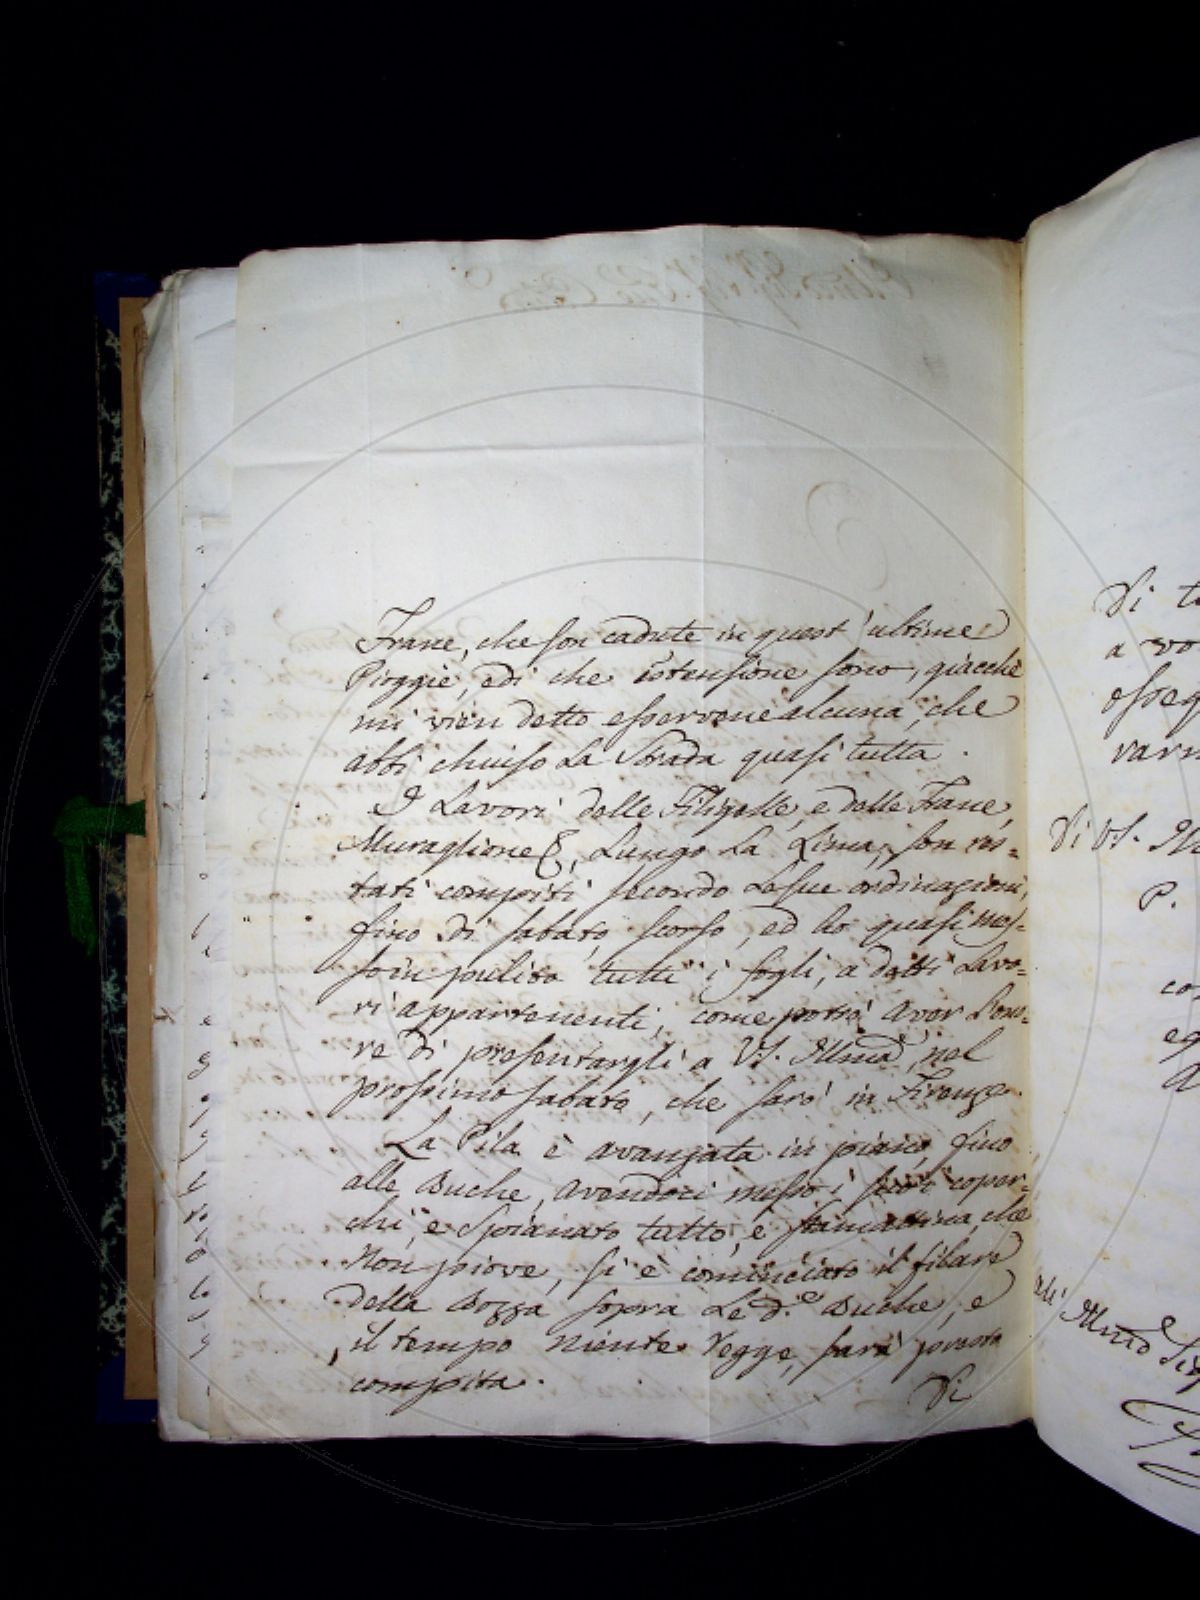 Frane, che son cadute in quest'ultime
Pioggie, e di che estensione sono, giacchè
mi vien detto esservene alcuna, che
abbi chiuso La Strada quasi tutta.
I Lavori delle Filigelle, e delle Frane,
Muraglione &, Lungo La Lima, son res=
tati compiti secondo Le sue ordinazioni,
fino di sabato scorso, ed ho quasi mes=
so in pulito tutti i fogli, a detti Lavo=
ri appartenenti, come potrò aver L'ono=
re di presentargli a VS. Illma, nel
prossimo sabato, che sarò in Firenze.
La Pila è avanzata in piano fino
alle Buche, avendoci messo i suoi coper=
chi, e Spianato tutto, e stamattina, che
Non piove, si è cominciato il filare
della Bozza sopra Le d.e Buche, e
il tempo niente Regge, sarà presto
compita.
Di
Di
a vo
osseq
varm
Di VS. Ill
P.
co
eg
A
Illma Sig